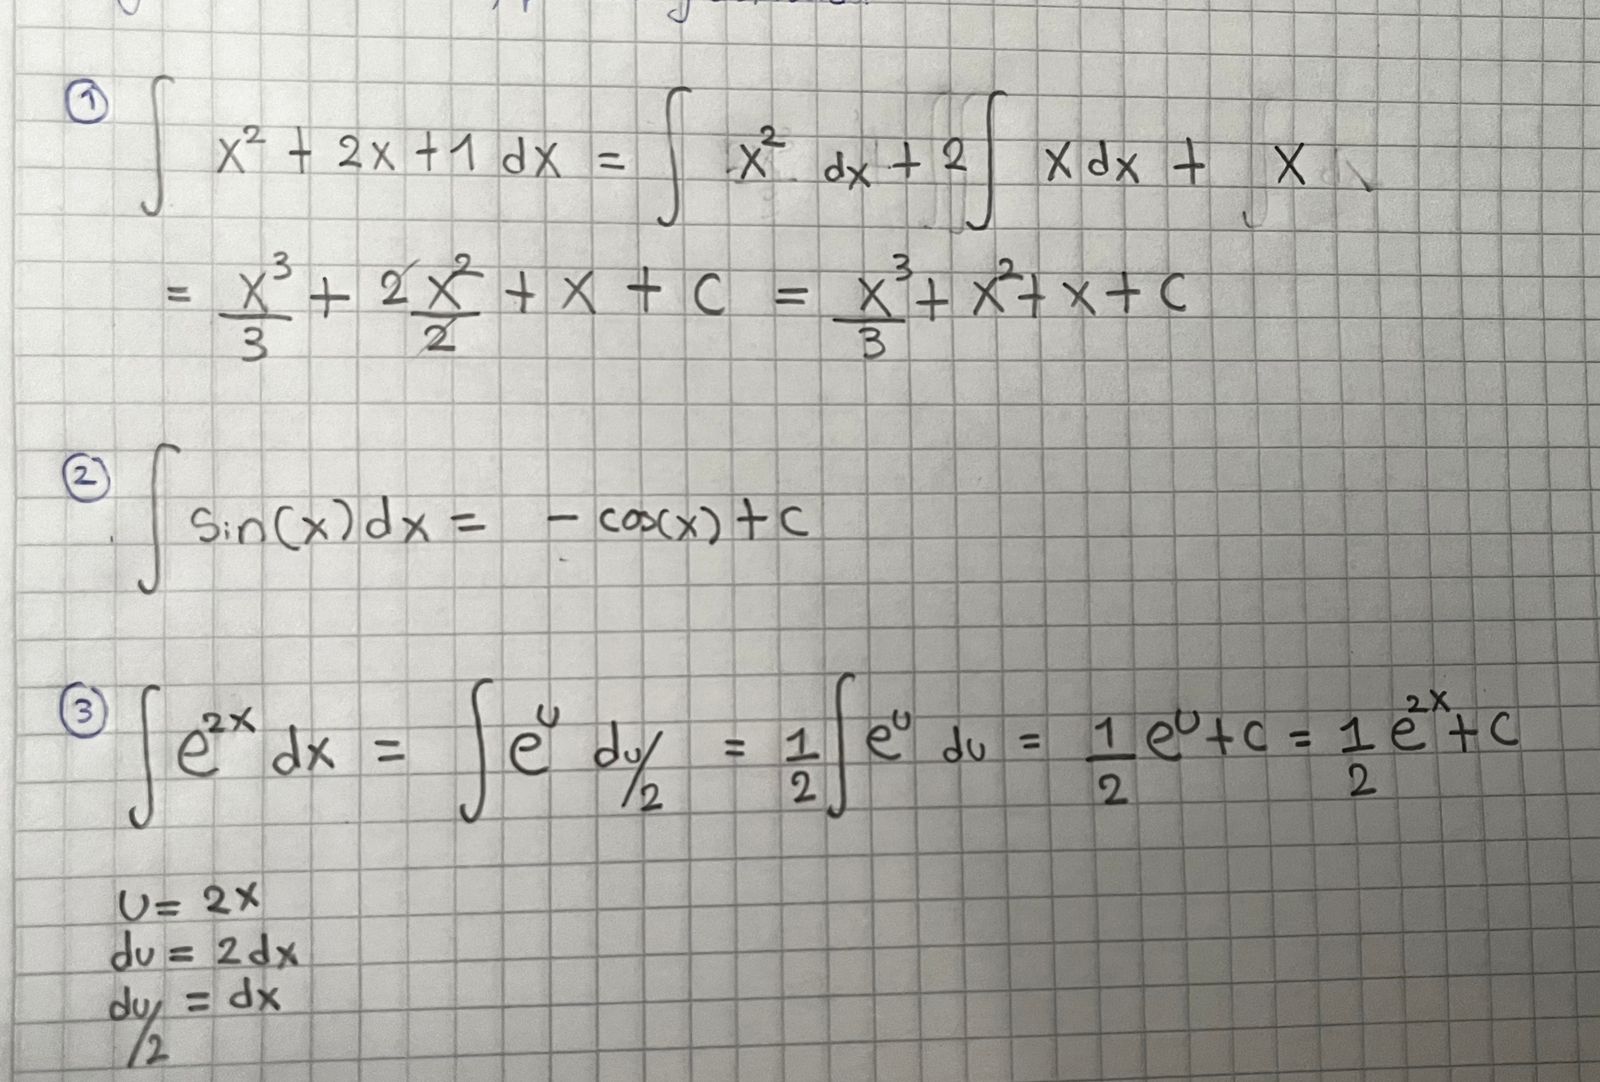 ① ∫ x² + 2x + 1 dx = ∫ x² dx + 2∫ x dx + x
= x³/3 + 2x²/2 + x + c = x³/3 + x² + x + c
② ∫ sin(x) dx = - cos(x) + c
③ ∫ e^{2x} dx = ∫ e^u du/2 = 1/2 ∫ e^u du = 1/2 e^u + c = 1/2 e^{2x} + c
u = 2x
du = 2dx
du/2 = dx